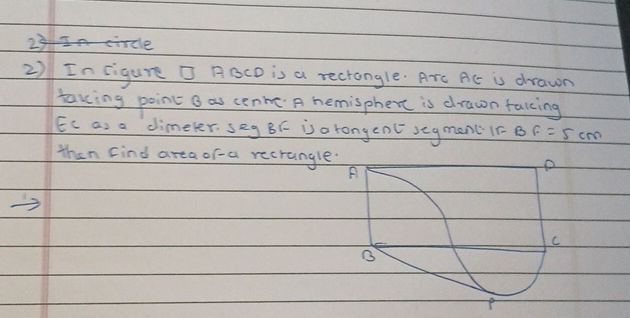 2) In circle
2) In Figure □ ABCD is a rectangle. Arc AE is drawn
taking point B as centre. A hemisphere is drawn taking
EC as a dimeter. seg BF is a tangent segment. If BF = 5 cm
then find area of a rectangle.
A D
→
B C
P